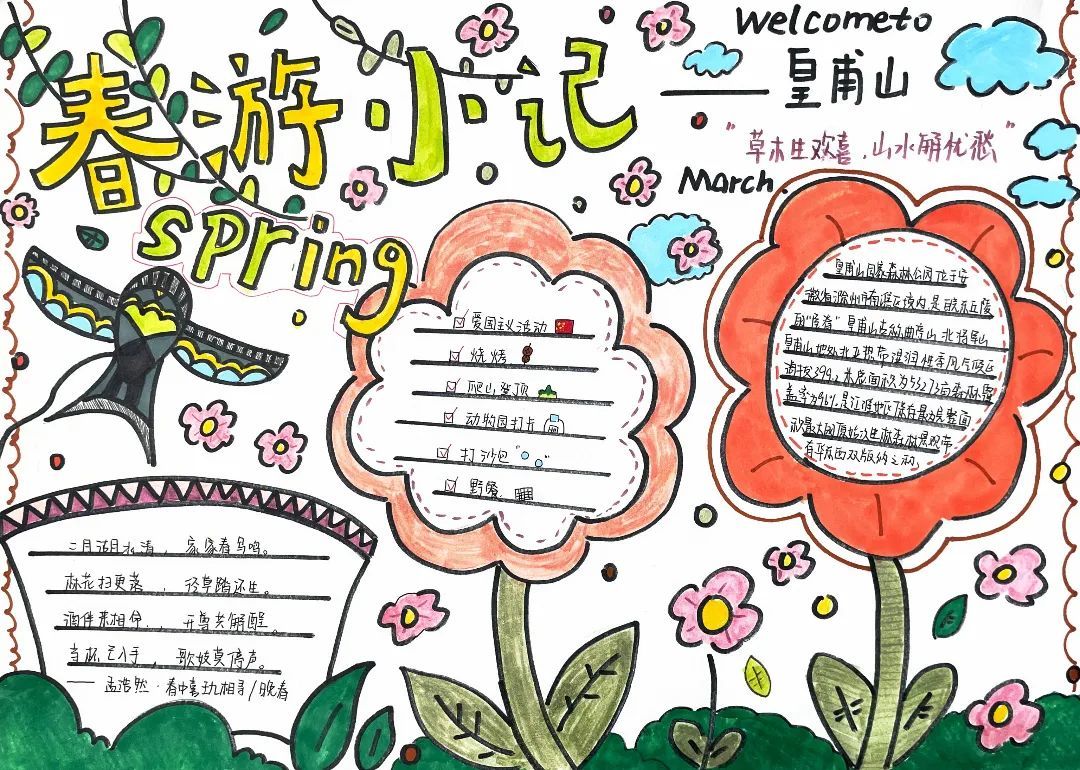 Welcometo
春游·小记
——皇甫山
"草木生欢喜,山水解忧愁"
March.
spring
爱国主义活动
烧烤
爬山登顶
动物园打卡
打沙包
野餐
皇甫山国家森林公园位于安
徽省滁州市南谯区境内是皖东丘陵
的"屋脊"皇甫山古称曲亭山 北将军山
皇甫山地处北亚热带湿润性季风气候区
海拔399。米总面积为53273亩森林覆
盖率为96%是江淮地区保存最为完整面
积最大的原始次生林森林景观带
有华东西双版纳之称,
二月湖水清,家家春鸟鸣。
林花扫更落,,径草踏还生。
酒伴来相命,,开尊共解酲。
当杯已入手,歌妓莫停声。
——孟浩然·春中喜王九相寻/晚春